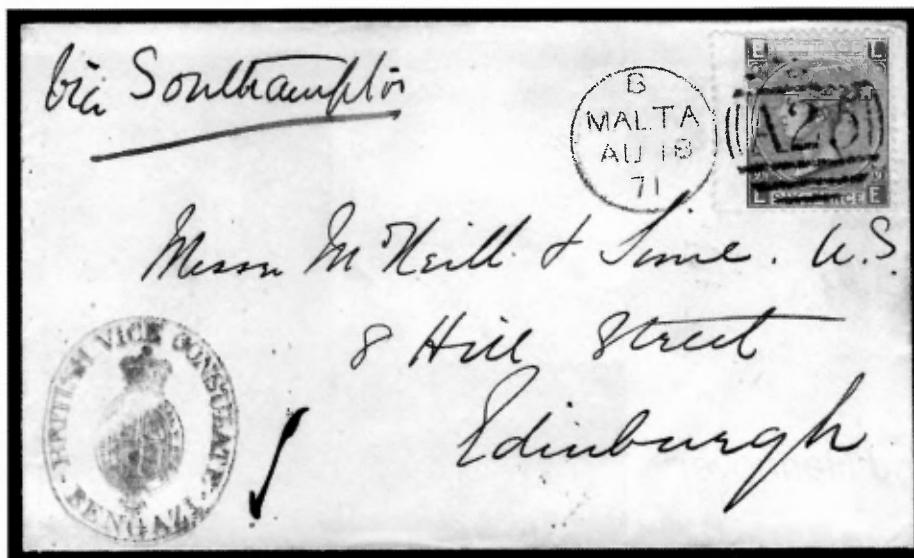 via Southampton
B
MALTA
AU 18
71
A25
E L
L E
Messrs McNeill & Sime. W.S.
8 Hill Street
Edinburgh
BRITISH VICE CONSULATE
BENGAZI